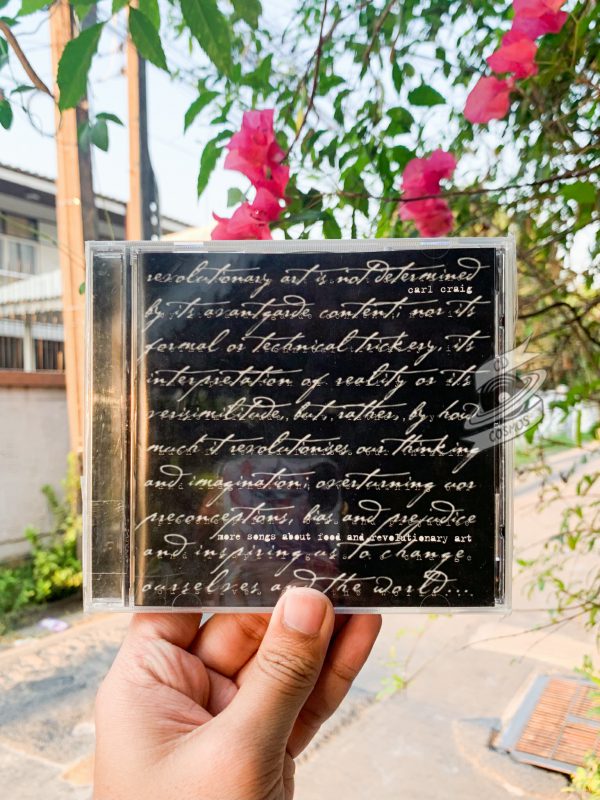 revolutionary art is not determined
carl craig
by its avantgarde content; nor its
formal or technical trickery, its
interpretation of reality or its
verisimilitude, but, rather, by how
much it revolutionises our thinking
and imagination; overturning our
preconceptions, bias and prejudice
more songs about food and revolutionary art
and inspiring us to change
ourselves and the world....
CD
COSMOS